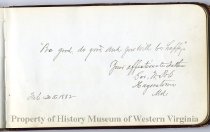 Be good, do good and you will be happy.
Your affectionate father
Hagerstown
Md.
Feb 20th 1882
Property of History Museum of Western Virginia